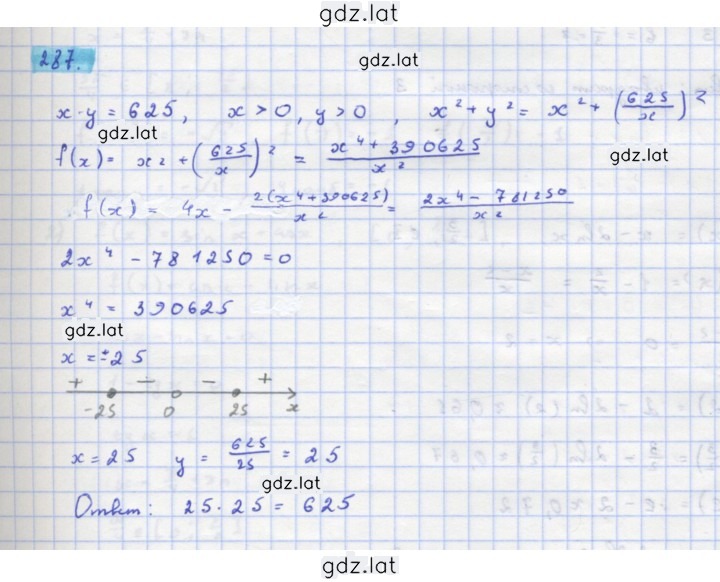 gdz.lat
287.
gdz.lat
x·y = 625, x > 0, y > 0, x² + y² = x² + (625/x)²
gdz.lat
f(x) = x² + (625/x)² = x⁴ + 390625/x²
gdz.lat
f(x) = 4x - 2(x⁴+390625)/x² = 2x⁴ - 781250/x²
2x⁴ - 781250 = 0
x⁴ = 390625
gdz.lat
x = ±25
+ - - +
-25 0 25 x
x = 25 y = 625/25 = 25
gdz.lat
Ответ: 25·25 = 625
gdz.lat